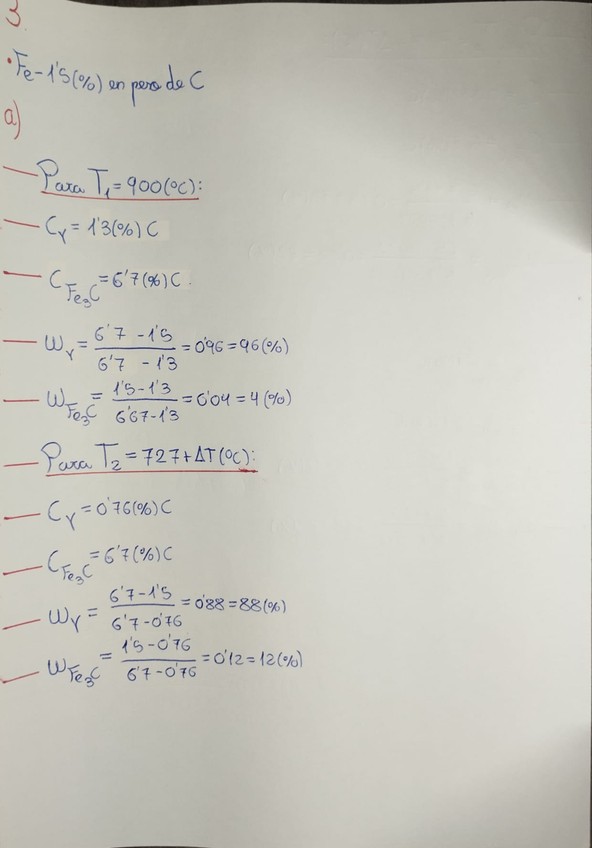 3
• Fe-1'5(%) en peso de C
a)
Para T₁ = 900(ºC):
Cγ = 1'3(%) C
C Fe₃C = 6'7(%) C
Wγ = (6'7 - 1'5)/(6'7 - 1'3) = 0'96 = 96(%)
W Fe₃C = (1'5-1'3)/(6'67-1'3) = 0'04 = 4(%)
Para T₂ = 727+ΔT(ºC):
Cγ = 0'76(%)C
C Fe₃C = 6'7(%)C
Wγ = (6'7-1'5)/(6'7-0'76) = 0'88 = 88(%)
W Fe₃C = (1'5-0'76)/(6'7-0'76) = 0'12 = 12(%)